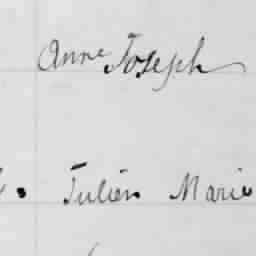 Anne Joseph
Julien Marie